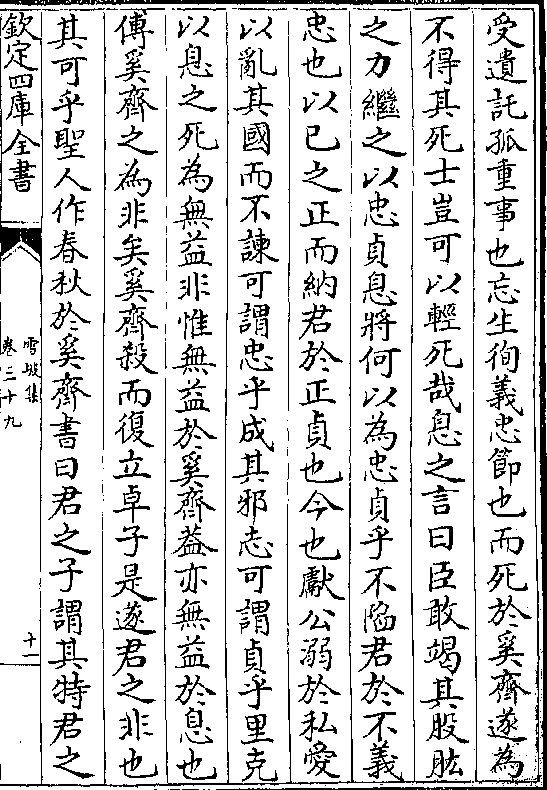 受遺託孤重事也忘生徇義忠節也而死於奚齊遂為
不得其死士豈可以輕死哉息之言曰臣敢竭其股肱
之力繼之以忠貞息將何以為忠貞乎不陷君於不義
忠也以已之正而納君於正貞也今也獻公溺於私愛
以亂其國而不諫可謂忠乎成其邪志可謂貞乎里克
以息之死為無益非惟無益於奚齊葢亦無益於息也
傅奚齊之為非矣奚齊殺而復立卓子是遂君之非也
其可乎聖人作春秋於奚齊書曰君之子謂其特君之
欽定四庫全書
雪坡集
卷二十九
十一